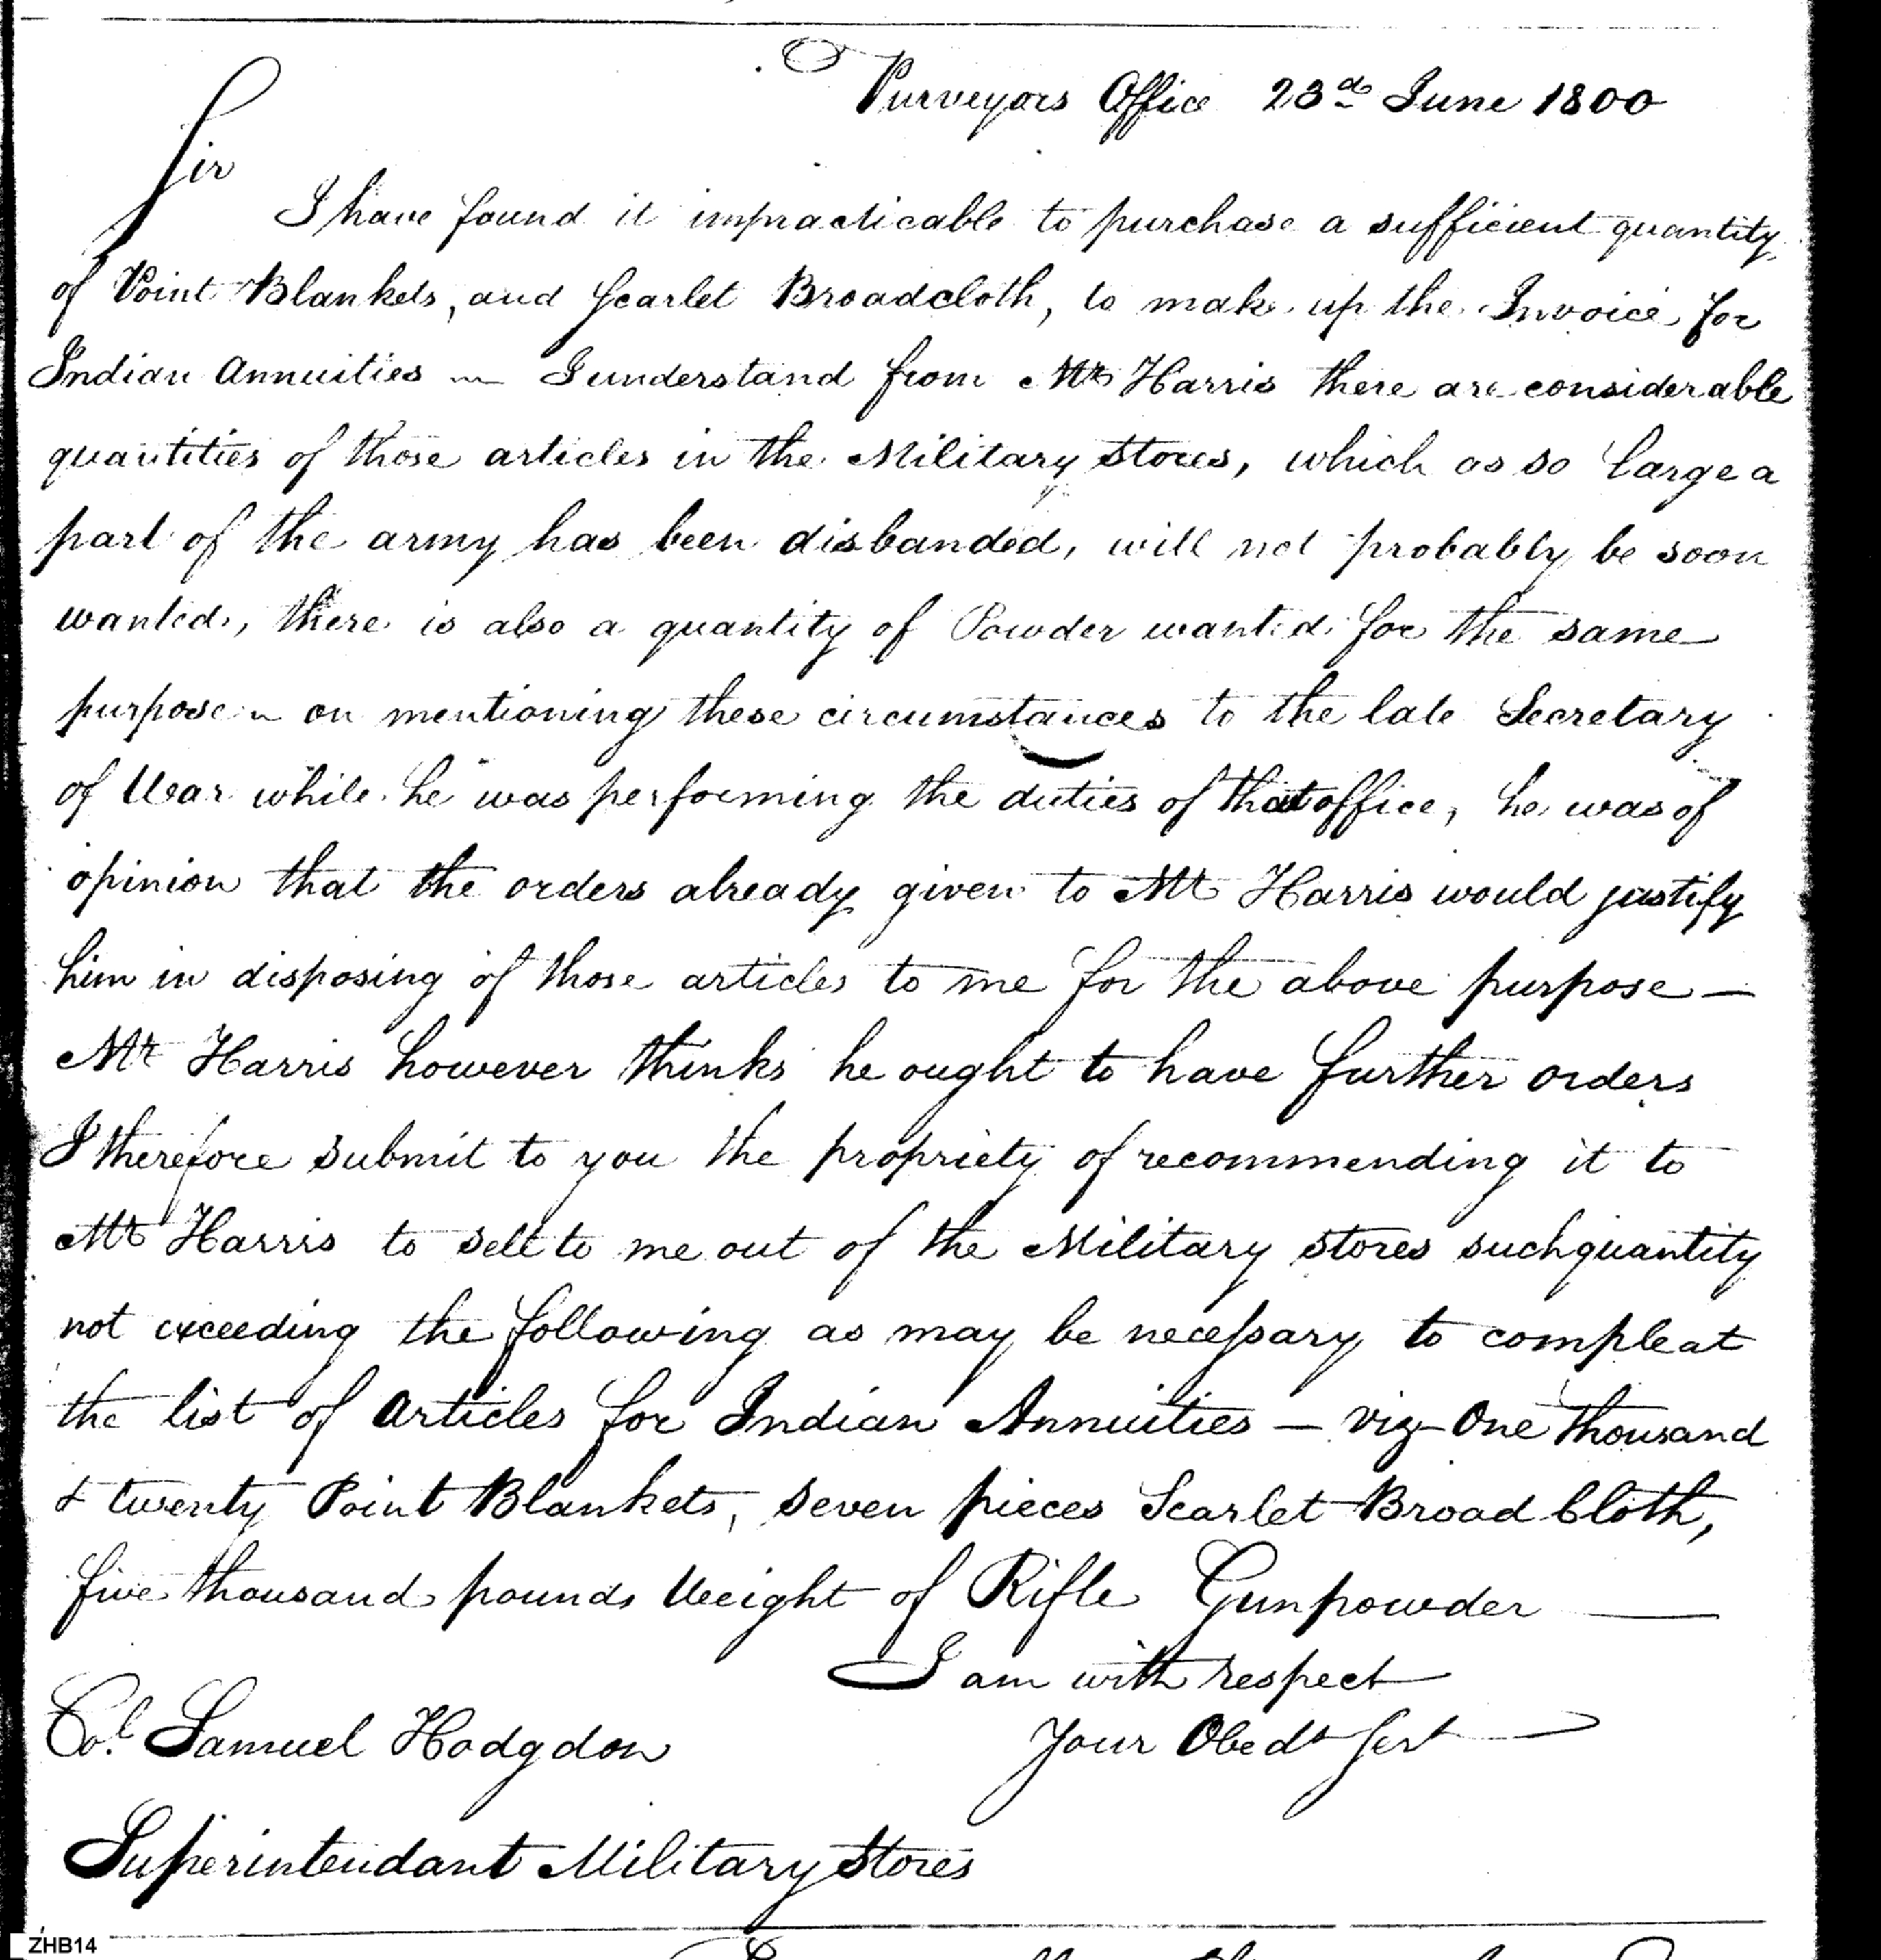 Purveyors Office 23d June 1800
Sir
I have found it impracticable to purchase a sufficient quantity
of Point Blankets, and Scarlet Broadcloth, to make up the Invoice for
Indian Annuities — I understand from Mr Harris there are considerable
quantities of those articles in the Military Stores, which as so large a
part of the army has been disbanded, will not probably be soon
wanted, there is also a quantity of Powder wanted for the same
purpose — on mentioning these circumstances to the late Secretary
of War while he was performing the duties of that office, he was of
opinion that the orders already given to Mr Harris would justify
him in disposing of those articles to me for the above purpose —
Mr Harris however thinks he ought to have further orders
I therefore submit to you the propriety of recommending it to
Mr Harris to sell to me out of the Military stores such quantity
not exceeding the following as may be necessary to compleat
the list of Articles for Indian Annuities — viz — One thousand
& twenty Point Blankets, seven pieces Scarlet Broad Cloth,
five thousand pounds Weight of Rifle Gunpowder —
I am with respect
Your Obedt Servt
Col. Samuel Hodgdon
Superintendant Military Stores
ZHB14